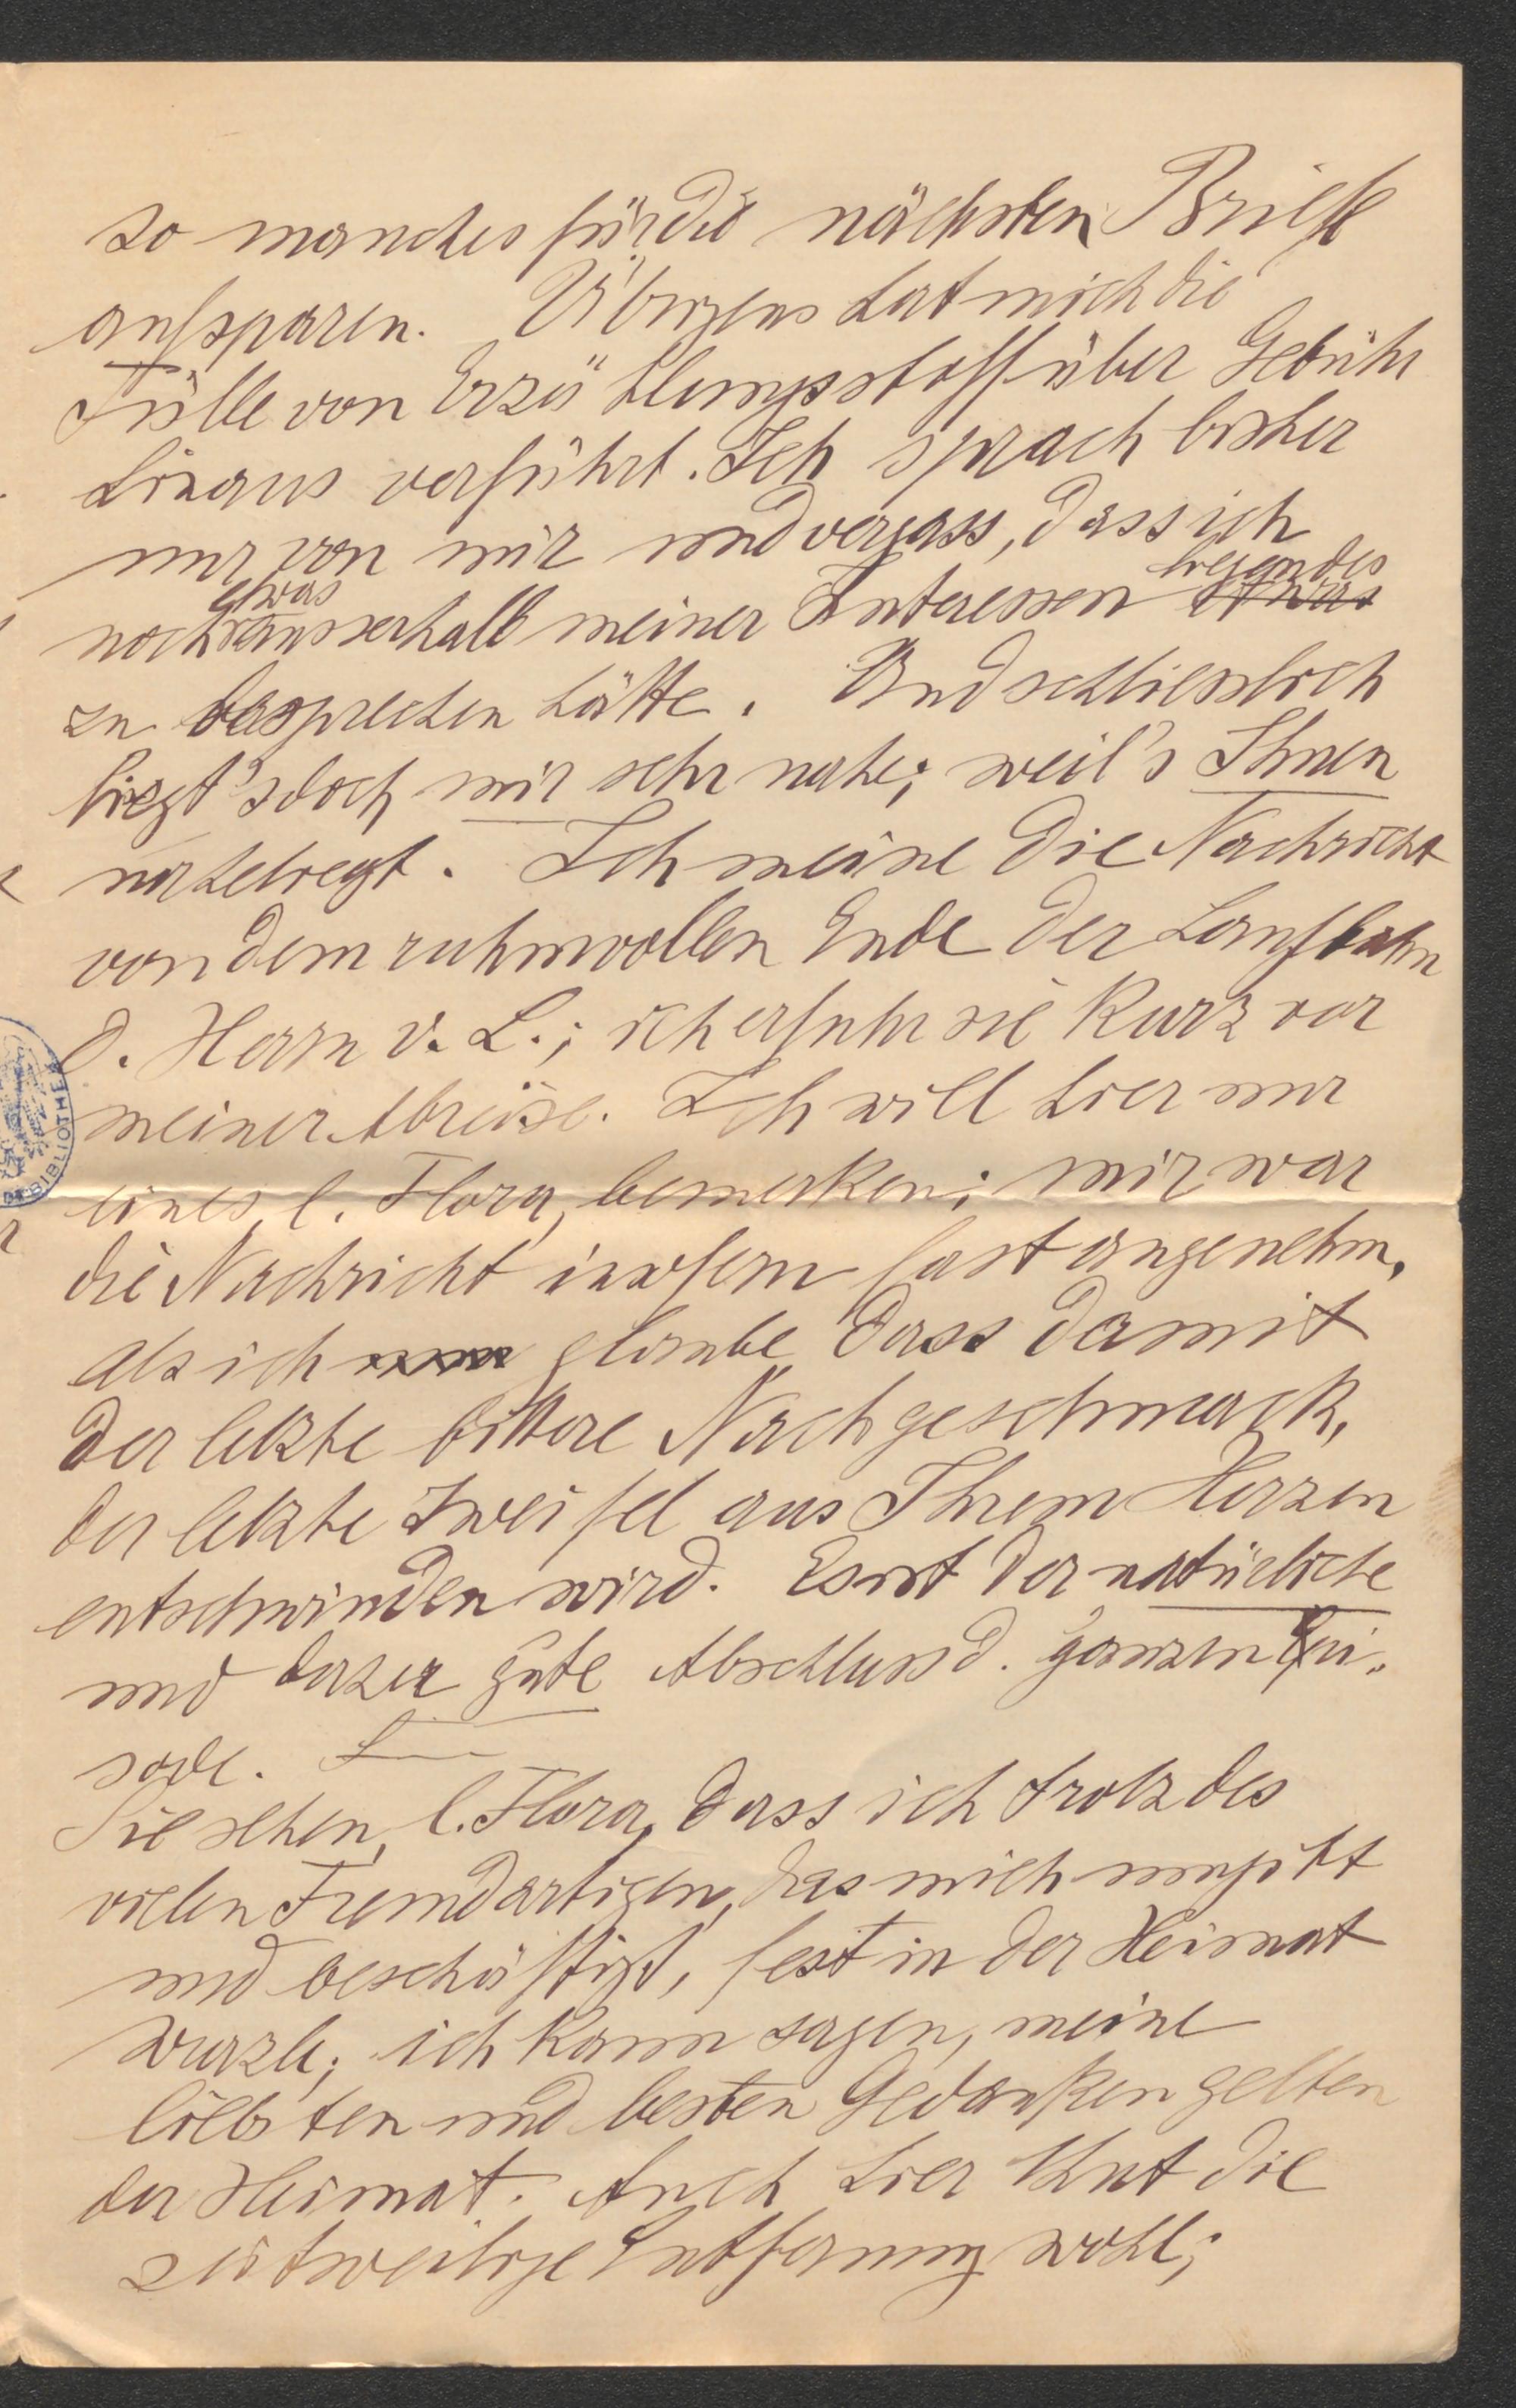 so manches für die nächsten Briefe
aufsparen. Übrigens hat mich die
Fülle von Erzählungsstoff über Gebühr
hinaus verführt. Ich sprach bisher
nur von mir und vergass, dass ich
noch etwas ausserhalb meiner Interessen liegendes etwas
zu besprechen hätte. Und schliesslich
liegt's doch mir sehr nahe; weil's Ihnen
naheliegt. Ich meine die Nachricht
von dem ruhmvollen Ende der Laufbahn
d. Herrn v. L.; ich erfuhr sie kurz vor
meiner Abreise. Ich will hier nur
eines, l. Flora, bemerken; mir war
die Nachricht insofern fast angenehm,
als ich glaube, dass damit
der letzte bittere Nachgeschmack,
der letzte Zweifel aus Ihrem Herzen
entschwinden wird. Es ist der natürliche
und daher gute Abschluss d. ganzen Epi-
sode.
Sie sehen, l. Flora, dass ich trotz des
vielen Fremdartigen, das mich umgibt
und beschäftigt, fest in der Heimat
wurzle; ich kann sagen, meine
liebsten und besten Gedanken gelten
der Heimat. Auch hier thut die
zeitweilige Entfernung wohl;
BIBLIOTHEK